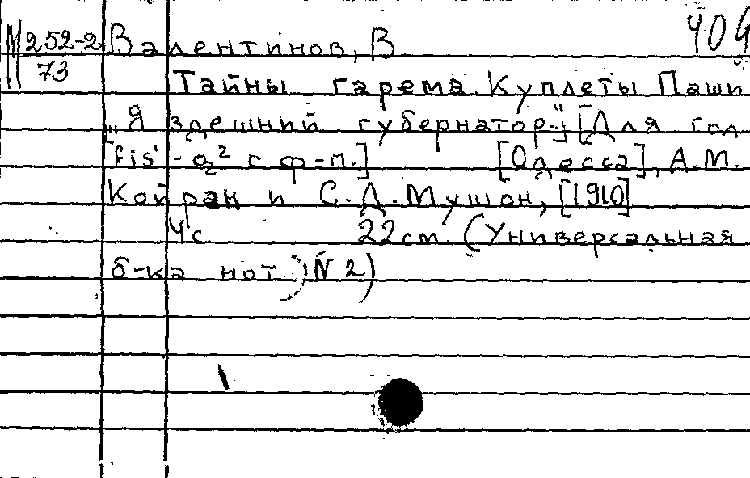 М 252-2 Валентинов, В 404
73
Тайны гарема. Куплеты Паши
„Я здешний губернатор." [Для гол.
[fis¹-a² с ф-п.] [Одесса], А.М.
Койран и С.Д.Мушон, [1910]
4с 22см. (Универсальная
б-ка нот) N 2)